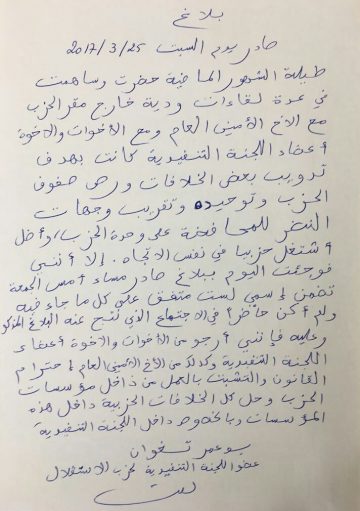 بلاغ
صادر يوم السبت 2017/3/25
طيلة الشهور الماضية حضرت وساهمت
في عدة لقاءات ودية خارج مقر الحزب
مع الأخ الأمين العام ومع الأخوات والاخوة
أعضاء اللجنة التنفيدية كانت بهدف
تدويب بعض الخلافات ورص صفوف
الحزب وتوحيده وتقريب وجهات
النضر للمحافضة على وحدة الحزب، وأضل
أشتغل حزبيا في نفس الاتجاه. إلا أنني
فوجئت اليوم ببلاغ صادر مساء أمس الجمعة
تضمن إسمي لست متفق على كل ما جاء فيه
ولم أكن حاضرا في الاجتماع الذي نتج عنه البلاغ المذكور
وعليه فإنني أرجو من الأخوات والاخوة أعضاء
اللجنة التنفيدية وكذلك من الأخ الأمين العام إحترام
القانون والتشبت بالعمل من داخل مؤسسات
الحزب وحل كل الخلافات الحزبية داخل هذه
المؤسسات وبالخصوص داخل اللجنة التنفيدية
بوعمر تغوان
عضو اللجنة التنفيدية لحزب الاستقلال